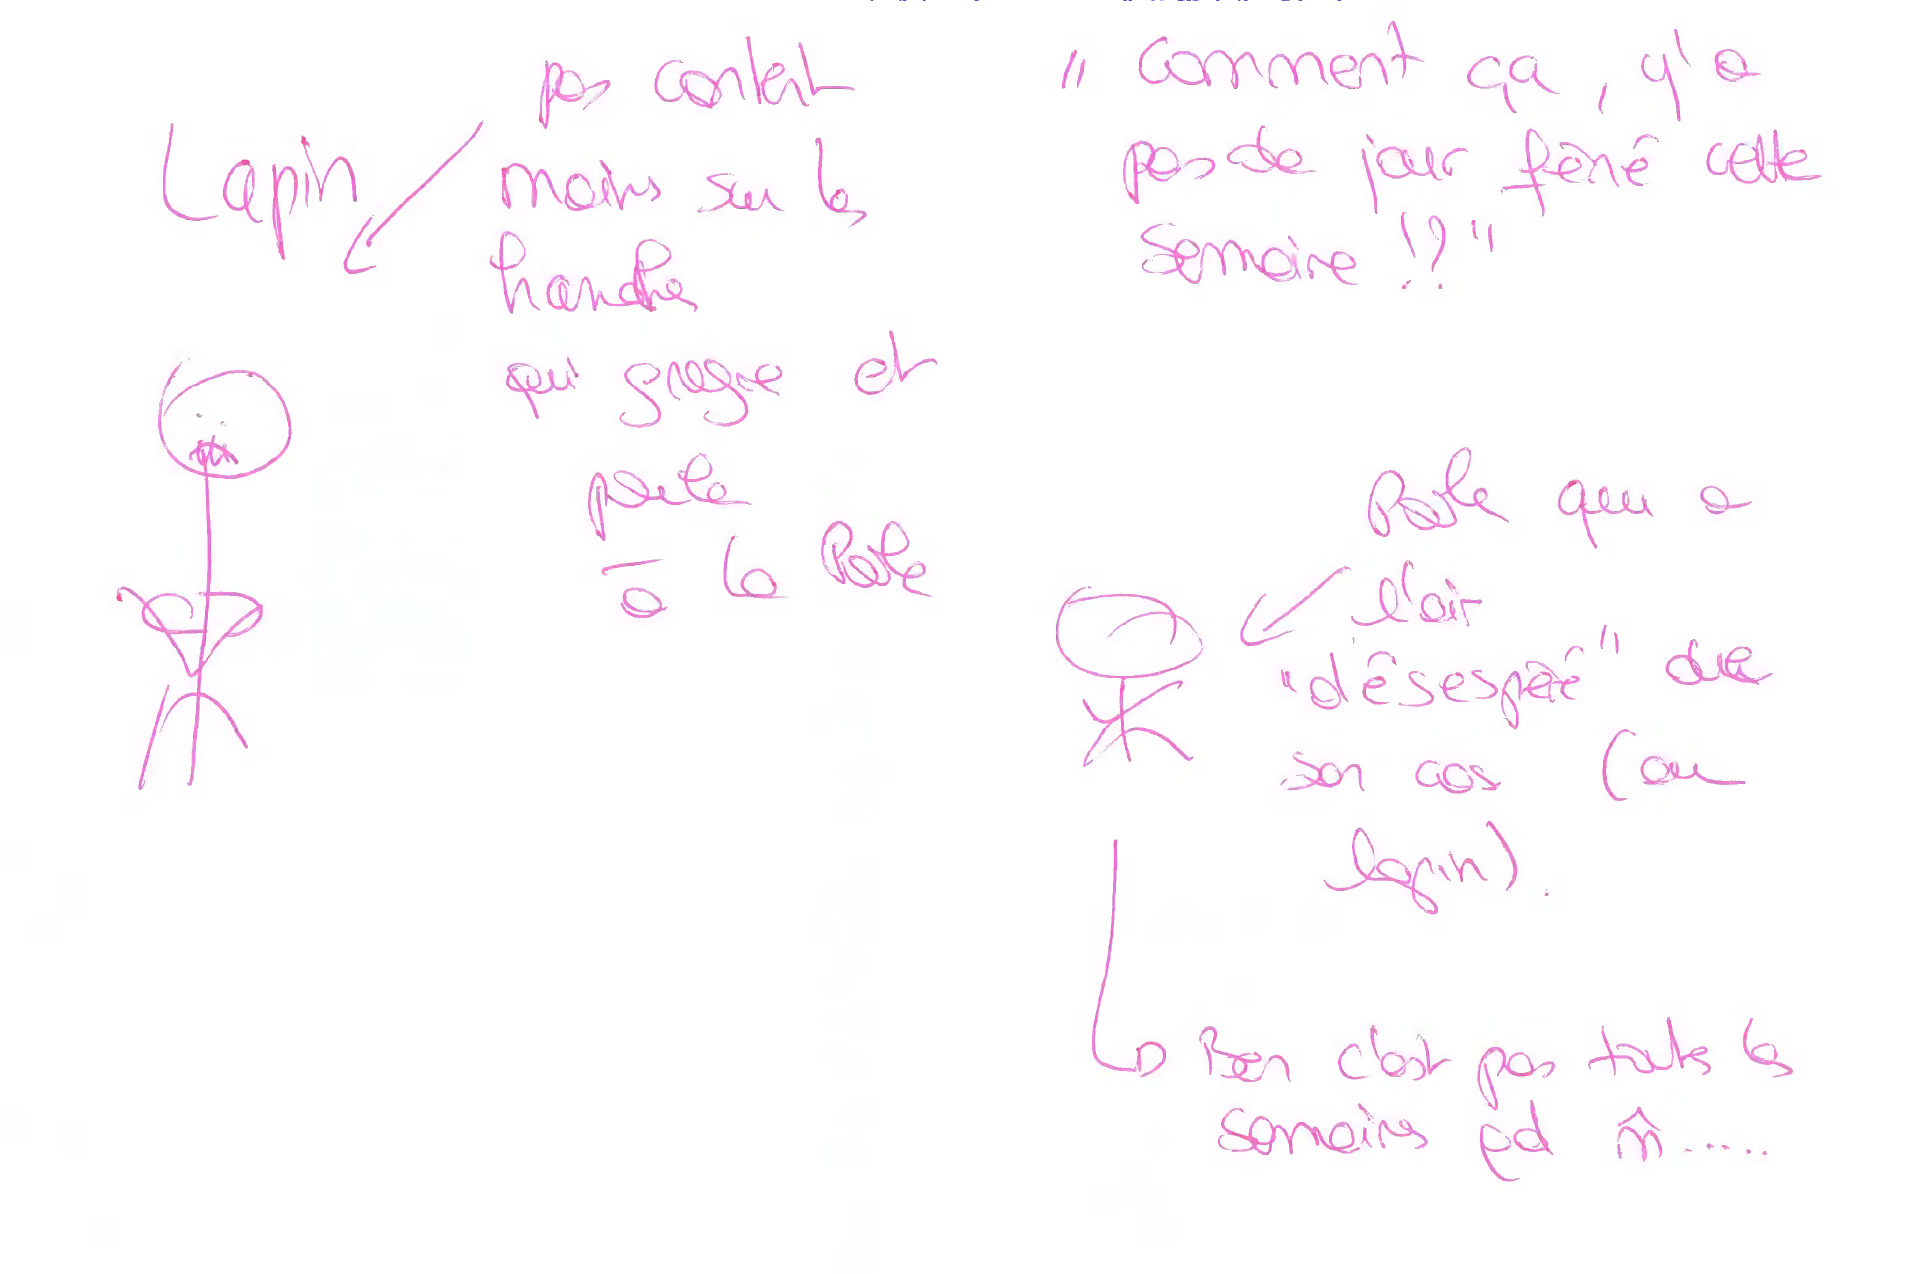 Lapin
pas content
mains sur les
hanches
qui grogne et
parle
à la Poule
" Comment ça, y'a
pas de jour férié cette
semaine !?"
Poule qui a
l'air
"désespéré" de
son cas (au
lapin).
Ben c'est pas toutes les
semaines qd m̂.....